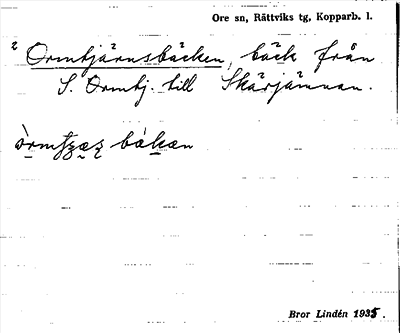 Ore sn, Rättviks tg, Kopparb. l.
2 Ormtjärnsbäcken, bäck från
S. Ormtj. till Skärjämnan.
Bror Lindén 1935.